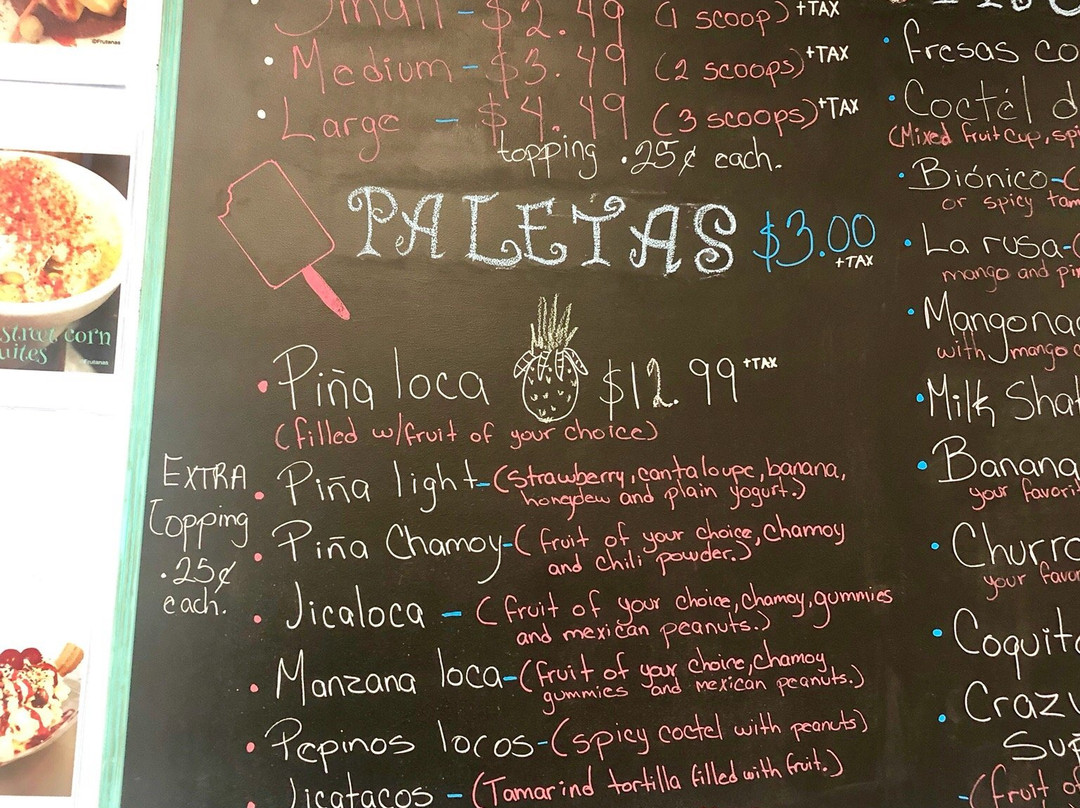 Small - $2.49 (1 scoop) +TAX
• Medium - $3.49 (2 scoops) +TAX
• Large - $4.49 (3 scoops) +TAX
topping .25¢ each.
PALETAS $3.00
+TAX
• Piña loca $12.99 +TAX
(filled w/fruit of your choice)
EXTRA
Topping
.25¢
each.
• Piña light - (Strawberry, cantaloupe, banana,
honeydew and plain yogurt.)
• Piña Chamoy - (fruit of your choice, Chamoy
and chili powder.)
• Jicaloca - (fruit of your choice, chamoy, gummies
and mexican peanuts.)
• Manzana loca - (fruit of your choice, chamoy
gummies and mexican peanuts.)
• Pepinos locos - (spicy coctel with peanuts)
Jicatacos - (Tamarind tortilla filled with fruit.)
• fresas co
• Coctél d
(Mixed fruit cup, spi
• Biónico - (
or spicy tam
• La rusa - (
mango and pi
• Mangona
with mango
• Milk Sha
• Banana
your favori
• Churro
your favor
• Coquito
• Crazy
(fruit of
©Frutanas
street corn
©Frutanas